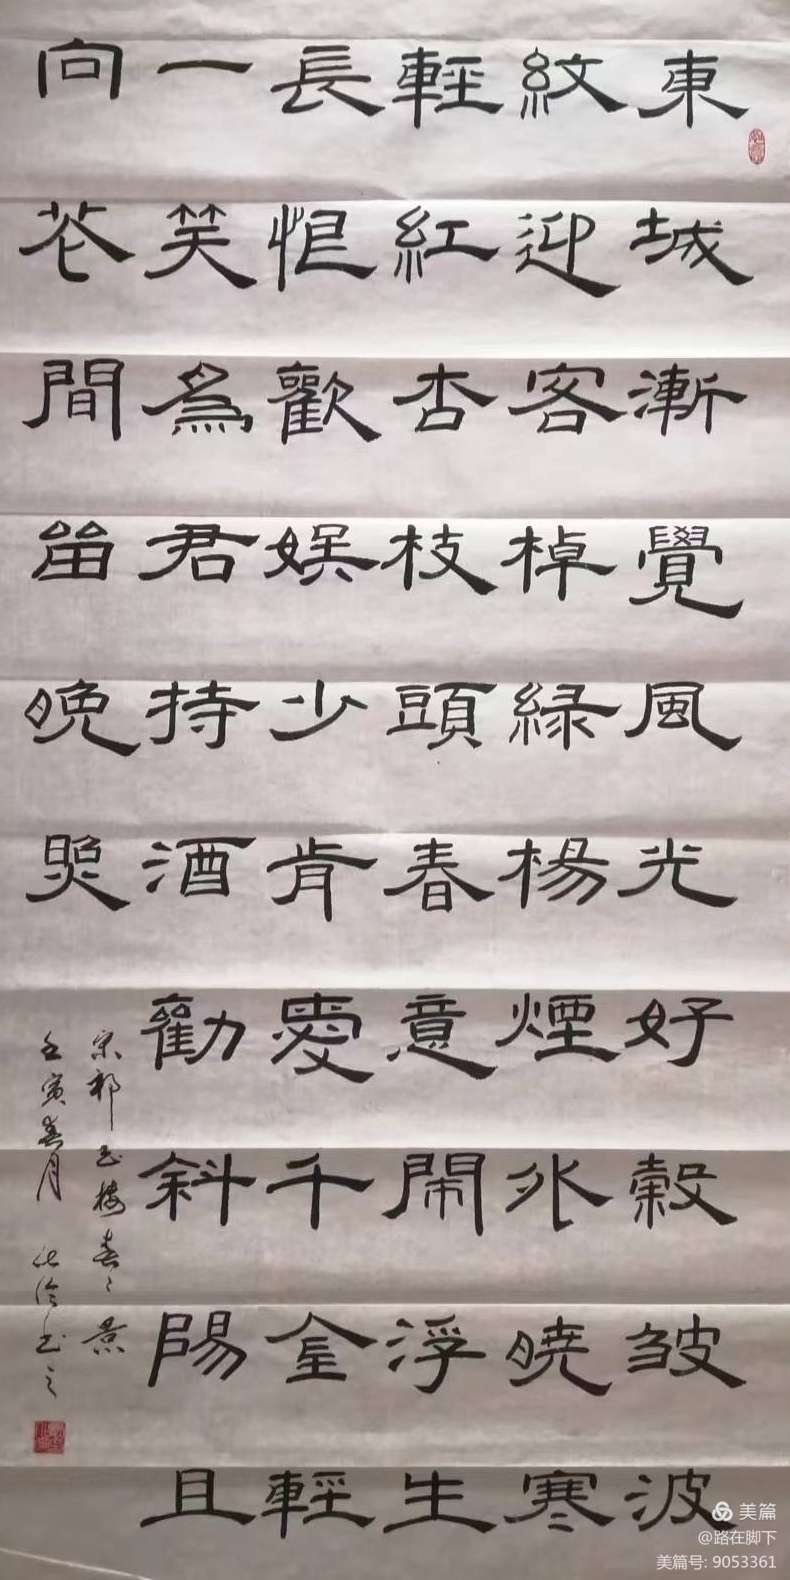 東城漸覺風光好縠皱波
紋迎客棹緑楊煙外曉寒
輕紅杏枝頭春意鬧浮生
長恨歡娱少肯愛千金輕
一笑為君持酒勸斜陽且
向花間留晚照
宋祁玉楼春春景
壬寅春月
美篇
@路在脚下
美篇号: 9053361